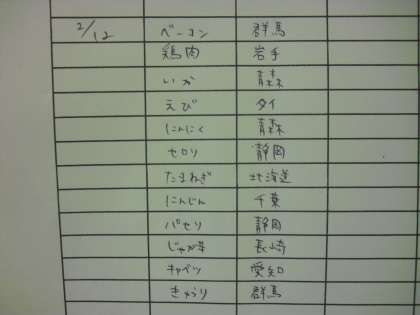 2/12 ベーコン 群馬
鶏肉 岩手
いか 青森
えび タイ
にんにく 青森
セロリ 静岡
たまねぎ 北海道
にんじん 千葉
パセリ 静岡
じゃが芋 長崎
キャベツ 愛知
きゅうり 群馬